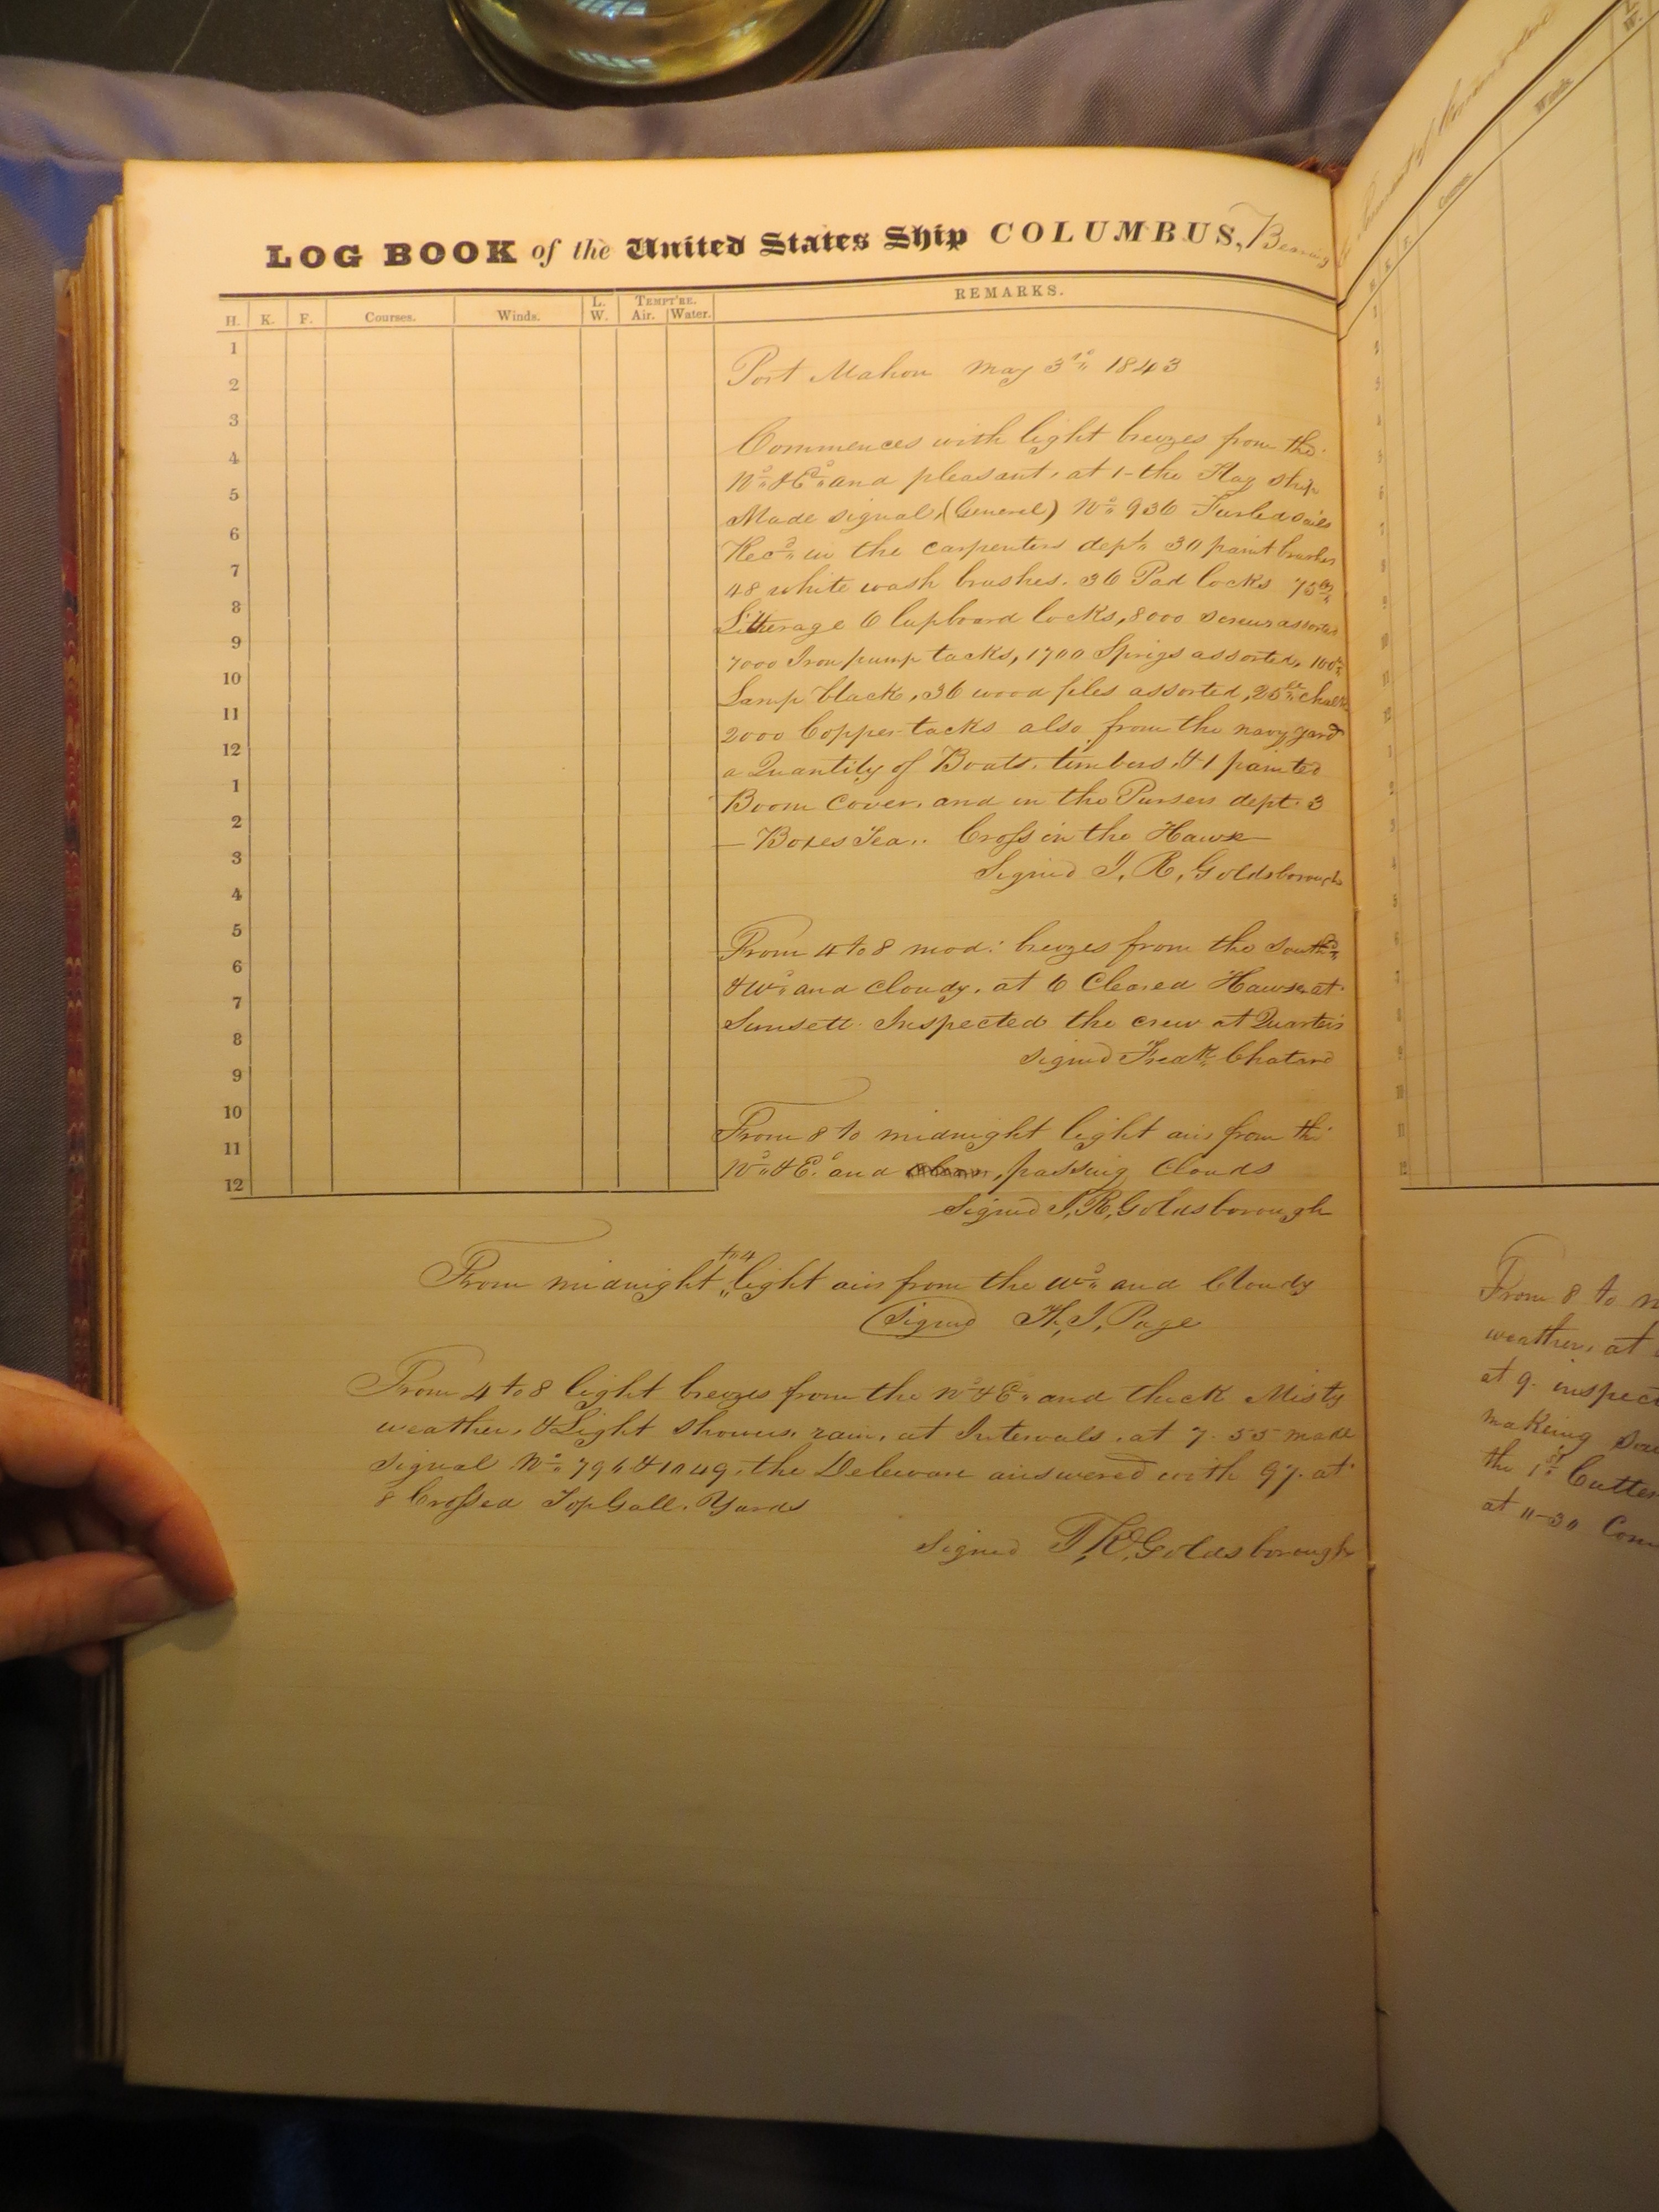 LOG BOOK of the United States Ship COLUMBUS, Bearing
H. K. F. Courses. Winds. L. W. TEMPT'RE. Air. Water. REMARKS.
1
2
3
4
5
6
7
8
9
10
11
12
1
2
3
4
5
6
7
8
9
10
11
12
Port Mahon May 3rd 1843
Commences with light breezes from the
Nd & Ed and pleasant. at 1- the Flag ship
Made signal, (General) No 936 Furled sails
Recd in the carpenters dept 30 paint brushes
48 white wash brushes. 36 Pad locks 75
Litherage 6 Cupboard locks, 8000 screws assorted
7000 Iron pump tacks, 1700 Sprigs assorted, 100
Lamp black, 36 wood files assorted, 25 lb chalk
2000 Copper tacks also from the navy yard
a Quantity of Boats. timbers, & 1 painted
Boom Cover. and in the Pursers dept. 3
Boxes Tea.. Cross in the Hawse
Signed J. R. Goldsborough
From 4 to 8 mod: breezes from the Southd
& Wd and cloudy. at 6 Cleared Hawse. at
Sunsett Inspected the crew at Quarters
signed Fredk Chatard
From 8 to midnight light airs from the
Nd & Ed and passing Clouds
Signed J. R. Goldsborough
From midnight to 4 light airs from the Wd and Cloudy
Signed H, J, Page
From 4 to 8 light breezes from the Nd & Ed and thick Misty
weather, & Light showers rain, at Intervals. at 7. 55 made
signal No 796 & 1049, the Deleware answered with 97. at
8 Crossed TopGall. Yards
Signed J, R, Goldsborough
Winds
Courses
From 8 to
weather, at
at 9. inspect
making
the 1st Cutter
at 11-30